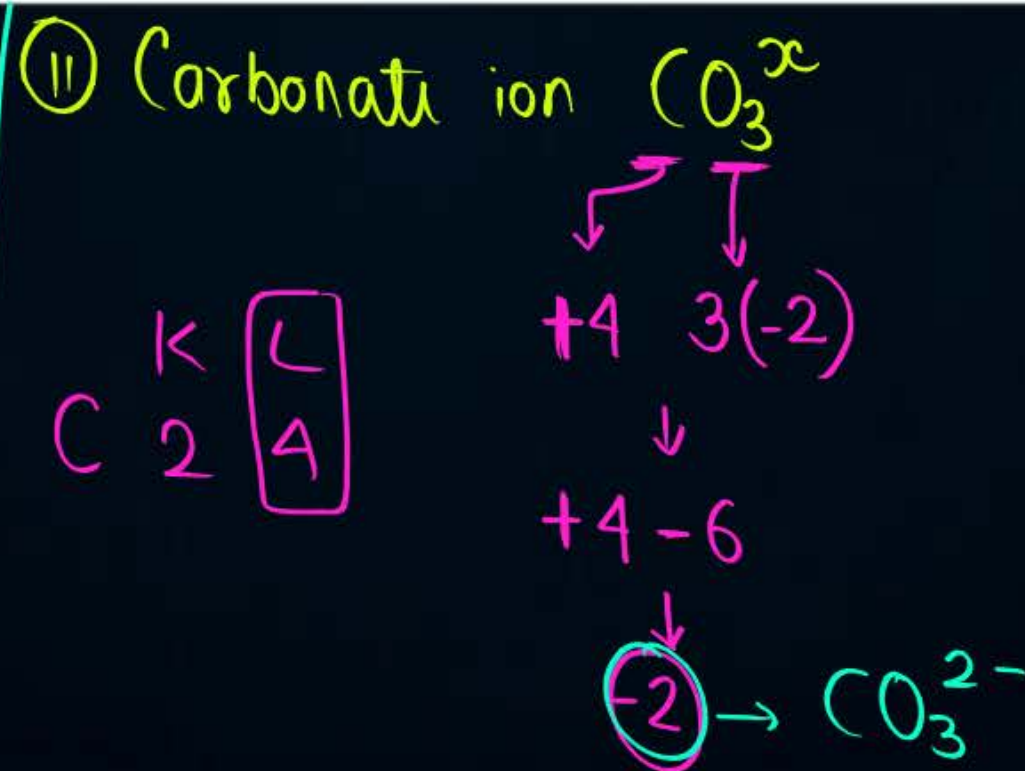 (11) Carbonate ion CO₃ˣ
+4 3(-2)
K L
C 2 4
+4 - 6
-2 → CO₃²⁻